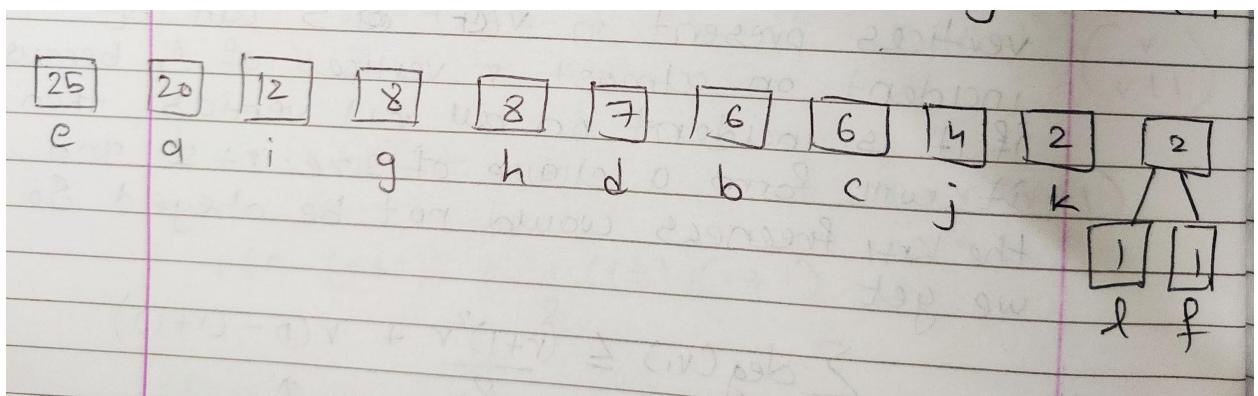 25 20 12 8 8 7 6 6 4 2 2
e a i g h d b c j k
1 1
l f